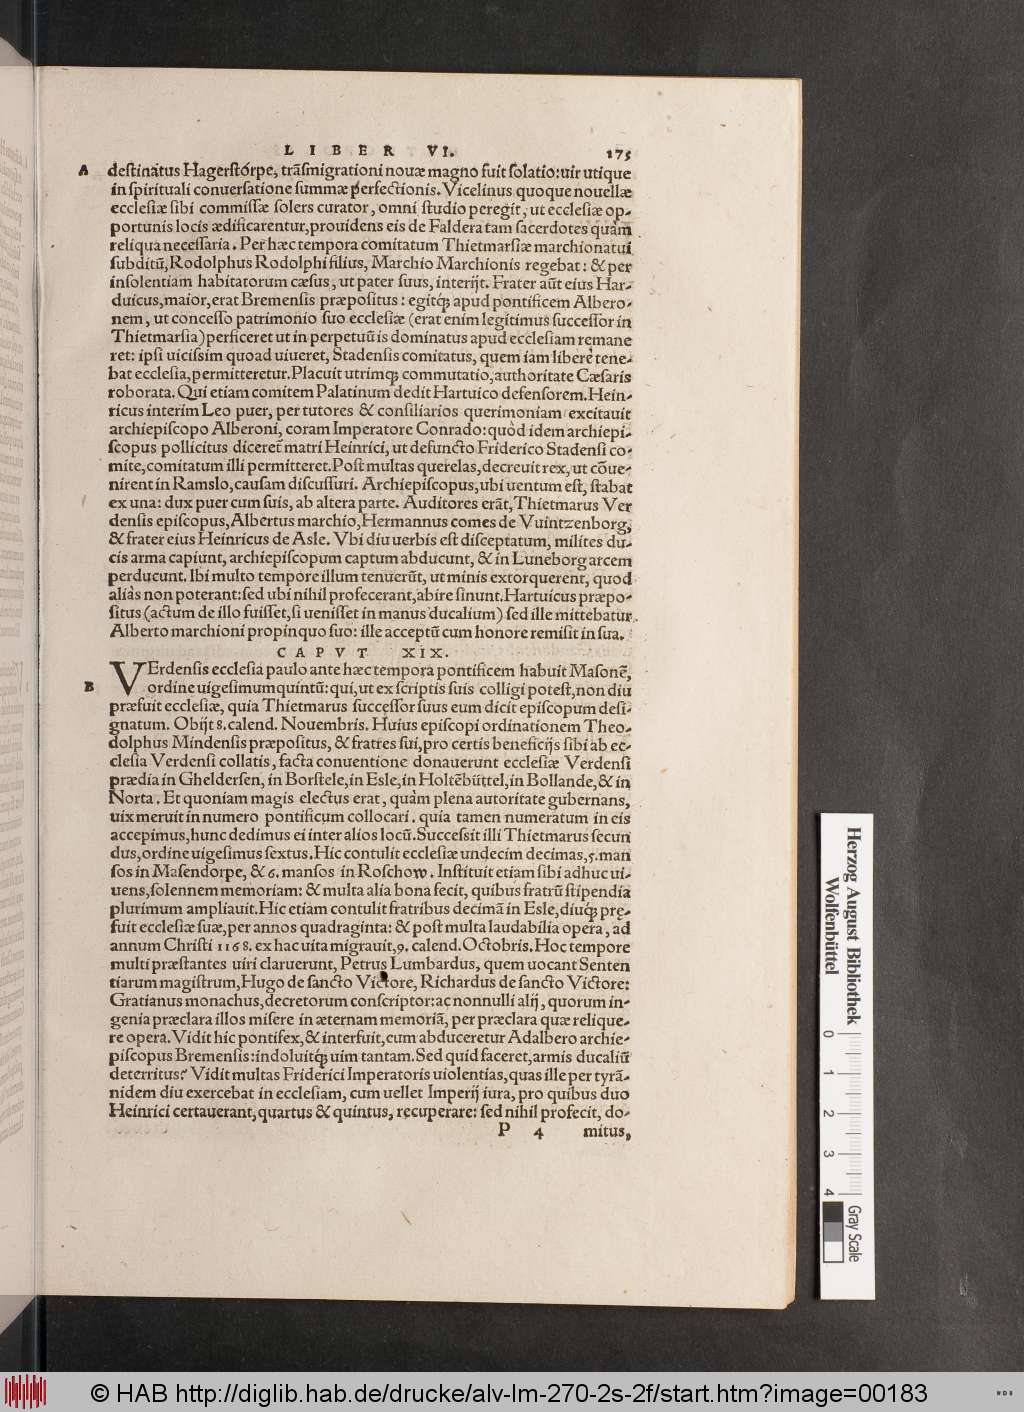 LIBER VI. 175
A destinatus Hagerstórpe, trãsmigrationi nouæ magno fuit solatio: uir utique
in spirituali conuersatione summæ perfectionis. Vicelinus quoque nouellæ
ecclesiæ sibi commissæ solers curator, omni studio peregit, ut ecclesiæ op-
portunis locis ædificarentur, prouidens eis de Faldera tam sacerdotes quàm
reliqua necessaria. Per hæc tempora comitatum Thietmarsiæ marchionatui
subditũ, Rodolphus Rodolphi filius, Marchio Marchionis regebat: & per
insolentiam habitatorum cæsus, ut pater suus, interijt. Frater aũt eius Har-
duicus, maior, erat Bremensis præpositus: egitq́; apud pontificem Albero-
nem, ut concesso patrimonio suo ecclesiæ (erat enim legitimus successor in
Thietmarsia) perficeret ut in perpetuũ is dominatus apud ecclesiam remane
ret: ipsi uicissim quoad uiueret, Stadensis comitatus, quem iam liberè tene-
bat ecclesia, permitteretur. Placuit utrimq; commutatio, authoritate Cæsaris
roborata. Qui etiam comitem Palatinum dedit Hartuico defensorem. Hein-
ricus interim Leo puer, per tutores & consiliarios querimoniam excitauit
archiepiscopo Alberoni, coram Imperatore Conrado: quòd idem archiepi-
scopus pollicitus diceret̃ matri Heinrici, ut defuncto Friderico Stadensi co-
mite, comitatum illi permitteret. Post multas querelas, decreuit rex, ut cõue-
nirent in Ramslo, causam discussuri. Archiepiscopus, ubi uentum est, stabat
ex una: dux puer cum suis, ab altera parte. Auditores erãt, Thietmarus Ver
densis episcopus, Albertus marchio, Hermannus comes de Vuintzenborg,
& frater eius Heinricus de Asle. Vbi diu uerbis est disceptatum, milites du-
cis arma capiunt, archiepiscopum captum abducunt, & in Luneborg arcem
perducunt. Ibi multo tempore illum tenuerũt, ut minis extorquerent, quod
aliàs non poterant: sed ubi nihil profecerant, abire sinunt. Hartuicus præpo-
situs (actum de illo fuisset, si uenisset in manus ducalium) sed ille mittebatur
Alberto marchioni propinquo suo: ille acceptũ cum honore remisit in sua.
CAPVT XIX.
B VErdensis ecclesia paulo ante hæc tempora pontificem habuit Masonẽ,
ordine uigesimumquintũ: qui, ut ex scriptis suis colligi potest, non diu
præfuit ecclesiæ, quia Thietmarus successor suus eum dicit episcopum desi-
gnatum. Obijt 8. calend. Nouembris. Huius episcopi ordinationem Theo-
dolphus Mindensis præpositus, & fratres sui, pro certis beneficijs sibi ab ec-
clesia Verdensi collatis, facta conuentione donauerunt ecclesiæ Verdensi
prædia in Gheldersen, in Borstele, in Esle, in Holtẽbüttel, in Bollande, & in
Norta. Et quoniam magis electus erat, quàm plena autoritate gubernans,
uix meruit in numero pontificum collocari. quia tamen numeratum in eis
accepimus, hunc dedimus ei inter alios locũ. Successit illi Thietmarus secun
dus, ordine uigesimus sextus. Hic contulit ecclesiæ undecim decimas, 5. man
sos in Masendorpe, & 6. mansos in Roschow. Instituit etiam sibi adhuc ui-
uens, solennem memoriam: & multa alia bona fecit, quibus fratrũ stipendia
plurimum ampliauit. Hic etiam contulit fratribus decimã in Esle, diuq́; prę-
fuit ecclesiæ suæ, per annos quadraginta: & post multa laudabilia opera, ad
annum Christi 1168. ex hac uita migrauit, 9. calend. Octobris. Hoc tempore
multi præstantes uiri claruerunt, Petrus Lumbardus, quem uocant Senten
tiarum magistrum, Hugo de sancto Victore, Richardus de sancto Victore:
Gratianus monachus, decretorum conscriptor: ac nonnulli alij, quorum in-
genia præclara illos misere in æternam memoriã, per præclara quæ relique-
re opera. Vidit hic pontifex, & interfuit, cum abduceretur Adalbero archie-
piscopus Bremensis: indoluitq́; uim tantam. Sed quid faceret, armis ducaliũ
deterritus? Vidit multas Friderici Imperatoris uiolentias, quas ille per tyrã-
nidem diu exercebat in ecclesiam, cum uellet Imperij iura, pro quibus duo
Heinrici certauerant, quartus & quintus, recuperare: sed nihil profecit, do-
P 4 mitus,
Herzog August Bibliothek
Wolfenbüttel
0 1 2 3 4
Gray Scale
© HAB http://diglib.hab.de/drucke/alv-lm-270-2s-2f/start.htm?image=00183
WDB